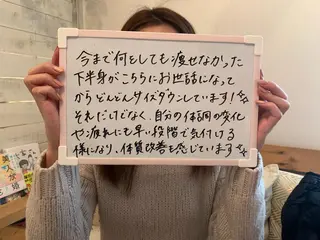 今まで何をしても痩せなかった
下半身がこちらにお世話になって
からどんどんサイズダウンしています!
それだけでなく、自分の体調の変化
や疲れにも早い段階で気付ける
様になり、体質改善を感じています